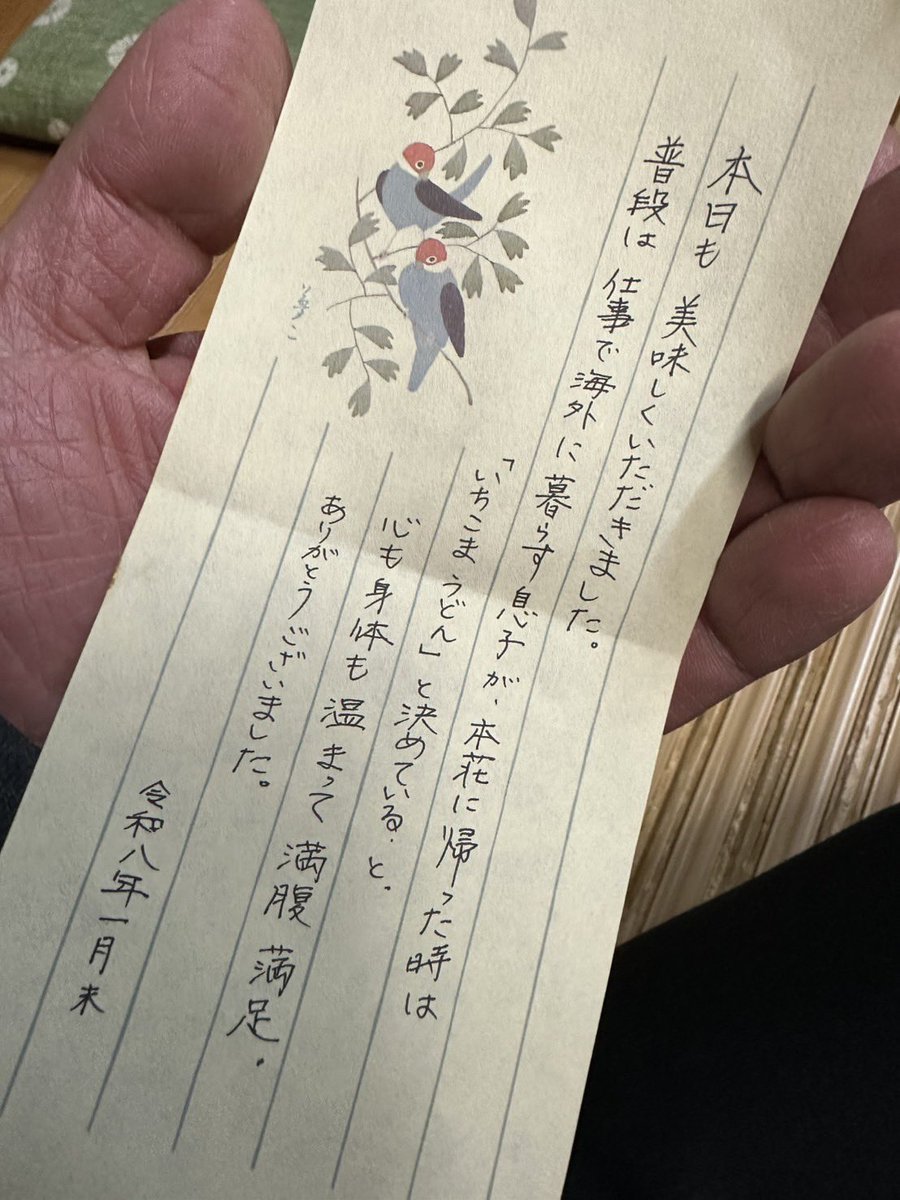 本日も 美味しくいただきました。
普段は 仕事で海外に暮らす息子が、本荘に帰った時は
「いちこま うどん」と決めている、と。
心も身体も温まって 満腹 満足。
ありがとうございました。
令和八年一月末